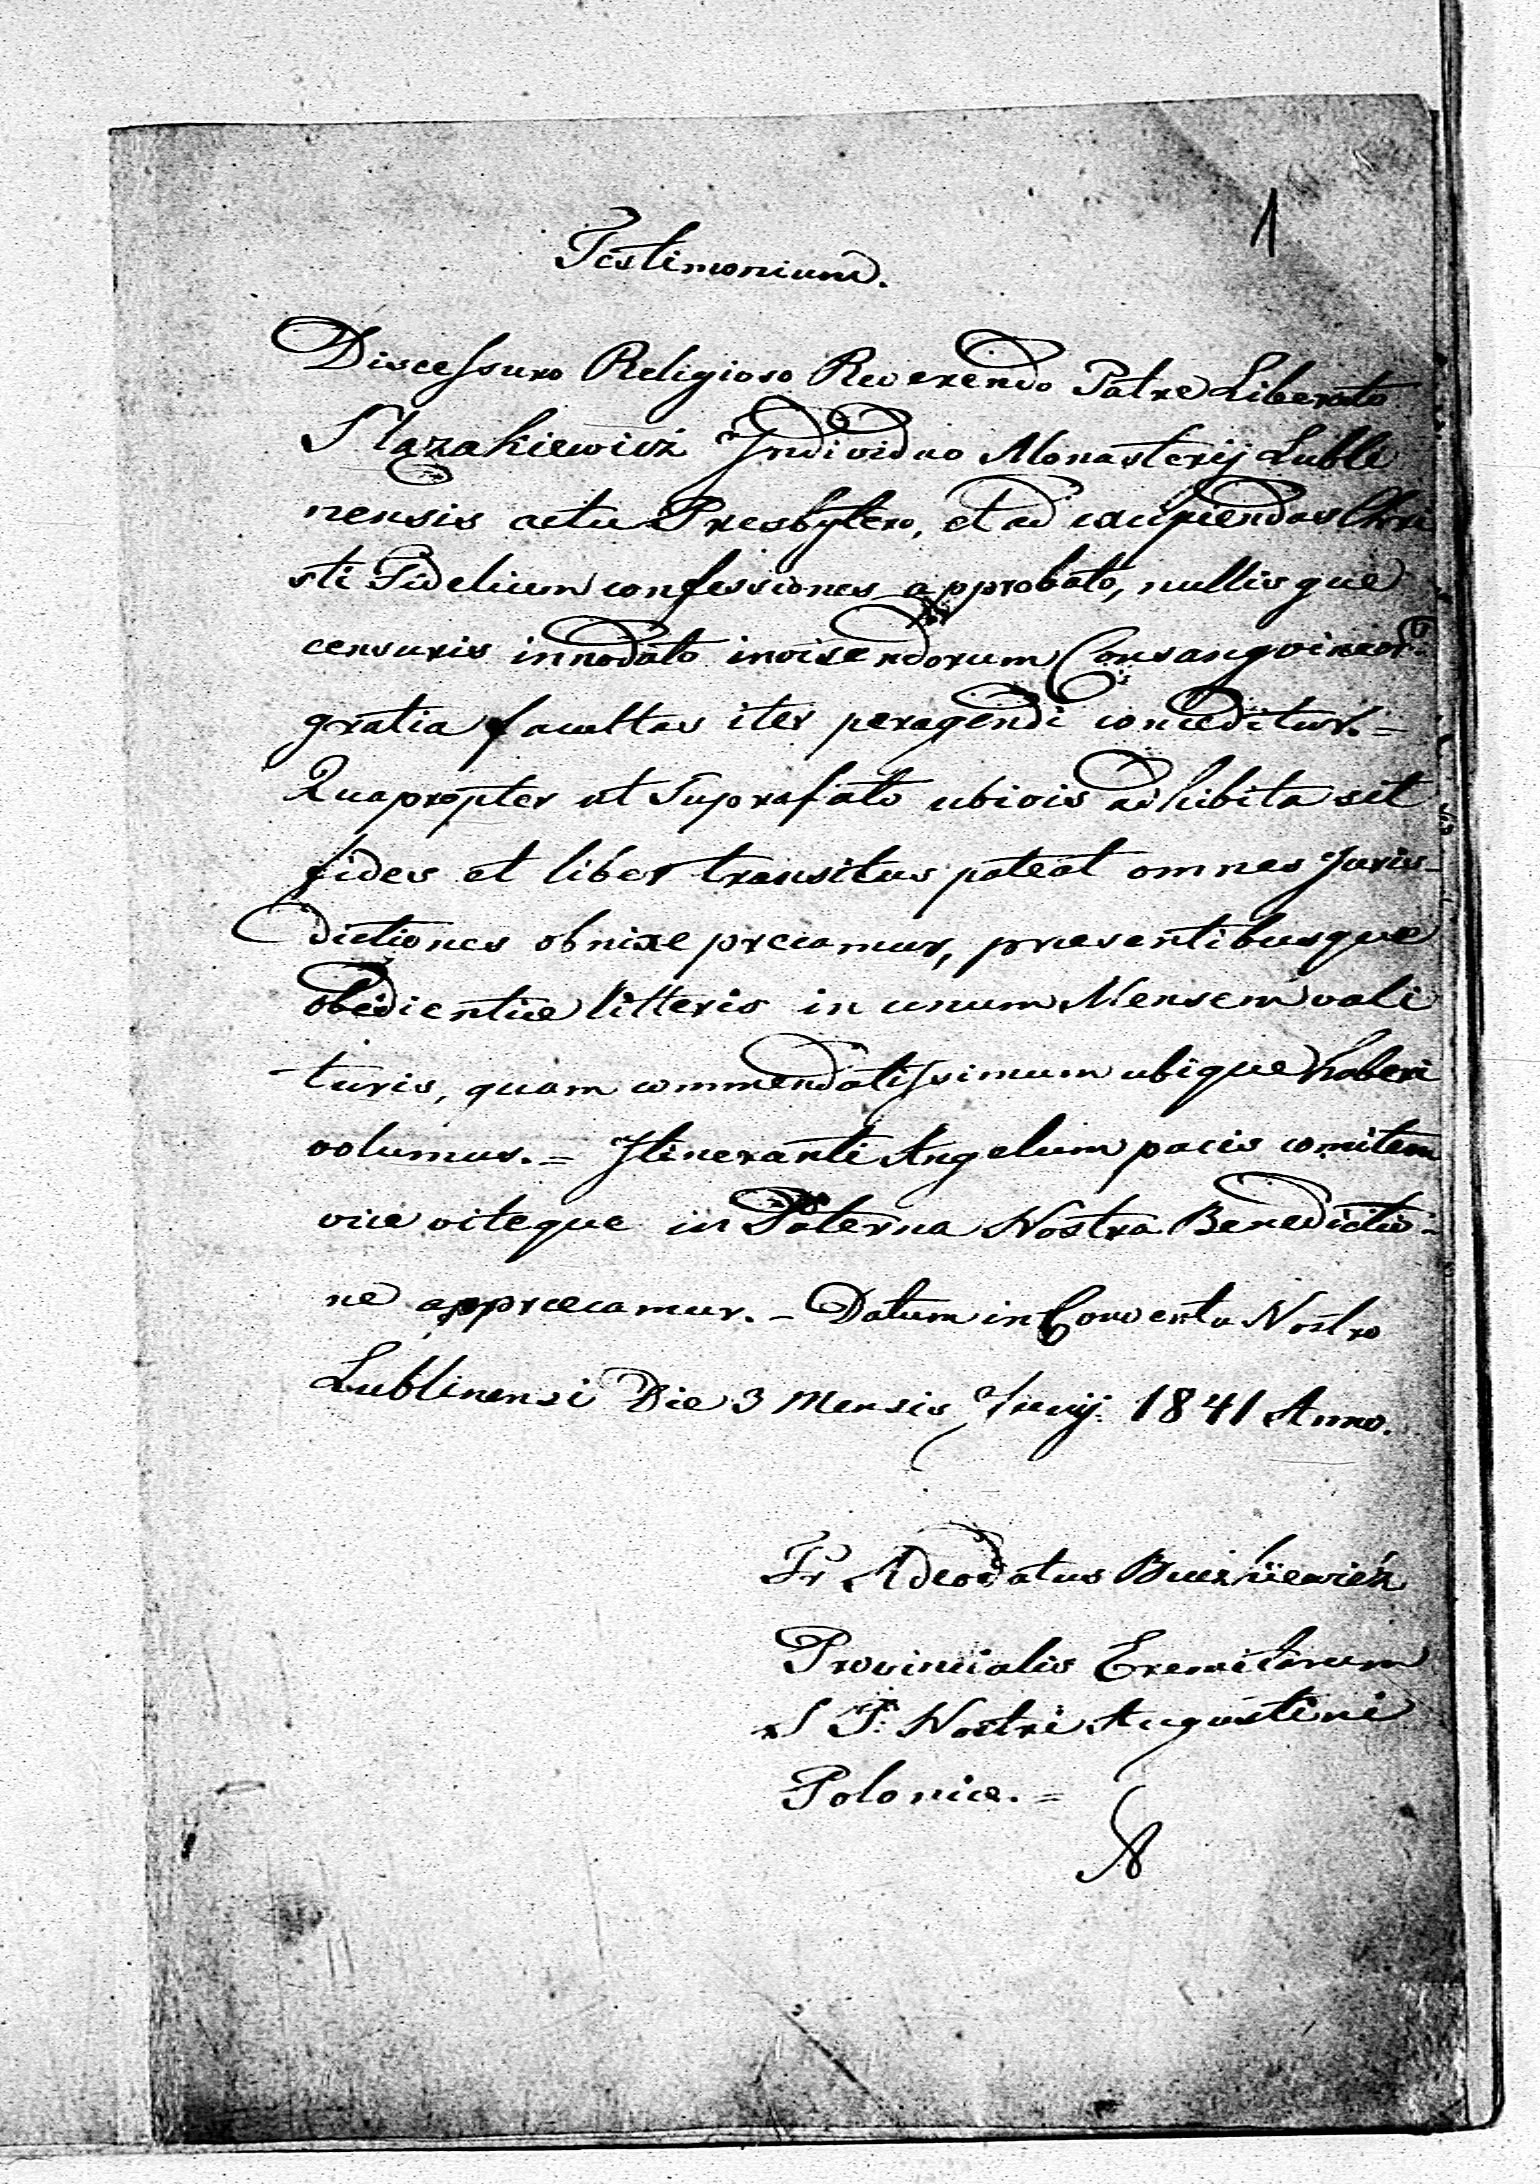 1
Testimonium.
Discessuro Religioso Reverendo Patre Liberato
Individuo Monasterij Lubli
nensis actu Presbytero, et ad excipiendas Chri
sti Fidelium confessiones approbato, nullisque
censuris innodato invisendorum Consangvineor:
gratia facultas iter peragendi conceditur. =
Quapropter ut Suprafato ubivis adhibita sit
fides et liber transitus pateat omnes Juris-
dictiones obnixe precamur, præsentibusque
obedientiæ litteris in unum Mensem vali
turis, quam commendatissimum ubique haberi
volumus. = Itineranti Angelum pacis comitem
viæ viteque in Paterna Nostra Benedictio-
ne appræcamur. - Datum in Conventu Nostro
Lublinensi Die 3 Mensis 1841 Anno.
Fr Adeodatus
Provincialis Eremitarum
S P: Nostri Augustini
Poloniæ. =